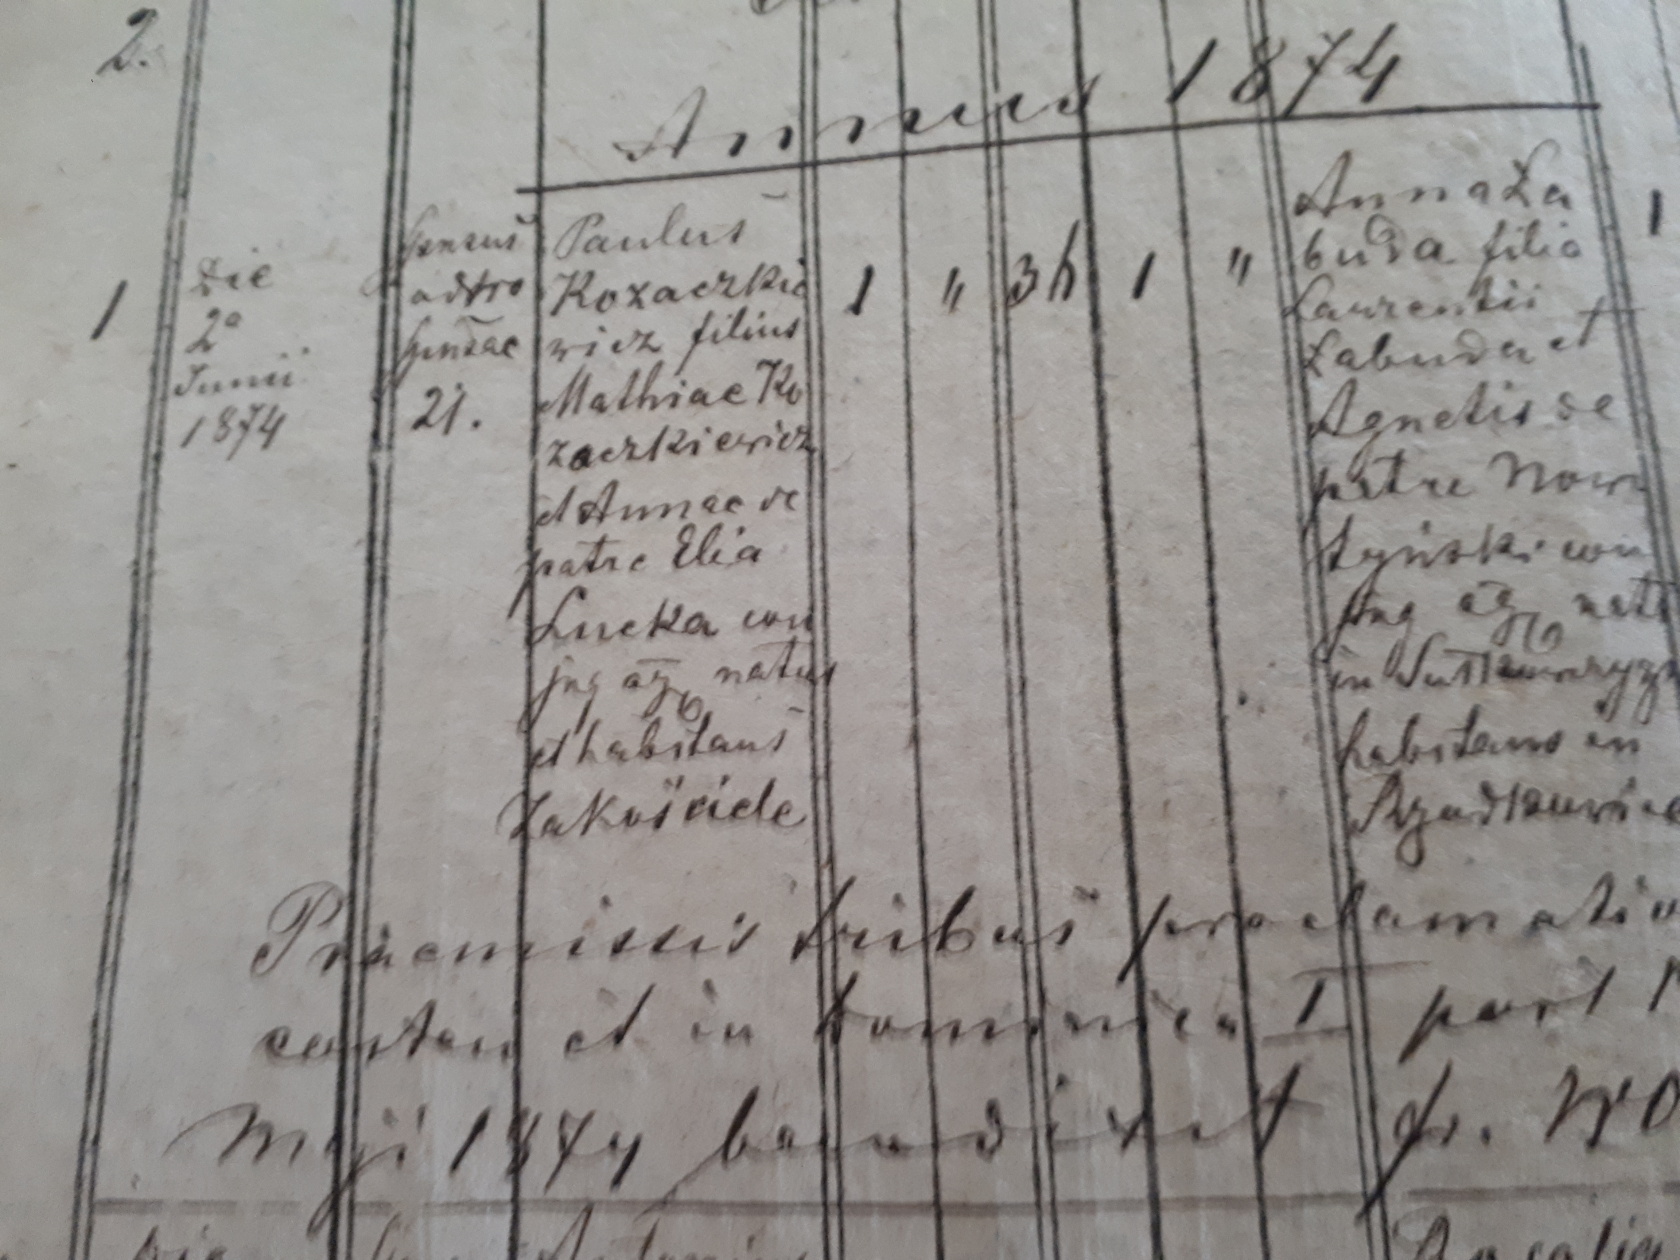 2.
Annus 1874
1
Die
2a
Junii
1874
Sponsus
ad Nro
Sponsae
21.
Paulus
Kozaczkie
wicz filius
Mathiae Ko
zaczkiewicz
et Annae de
patre Elia
Lucka con
jug agr natus
et habitans
Zakościele
1 " 34 1 "
Anna La
buda filia
Laurentii
Labuda et
Agnetis de
patre Nowo
tyński con
jug agr nata
in
habitans in
1
Praemissis tribus proclamatio
et in Dominica I post P
Maji 1874 benedixit fr. WO